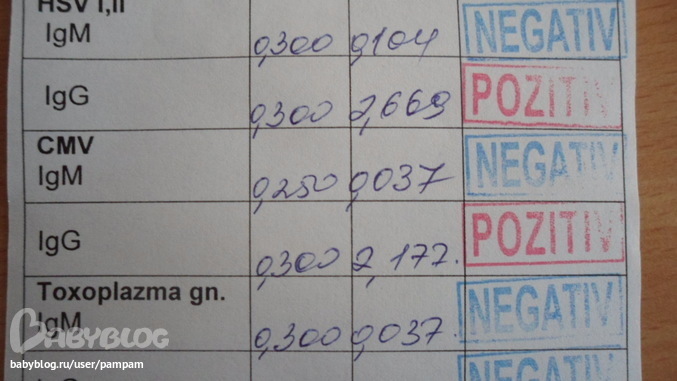 HSV I,II
IgM 0,300 0,104 NEGATIV
IgG 0,300 2,669 POZITIV
CMV
IgM 0,250 0,037 NEGATIV
IgG 0,300 2,177. POZITIV
Toxoplazma gn.
IgM 0,300 0,037. NEGATIV
IgG NEGATIV
BABYBLOG
babyblog.ru/user/pampam